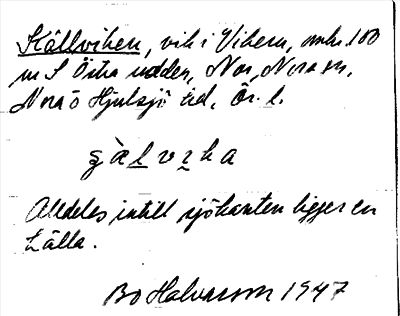 Källviken, vik i Vikern, omkr. 100
m S Östra udden, Nor, Nora sn,
Nora o Hjulsjö tid, Ör. l.
çàlvika
Alldeles intill sjökanten ligger en
källa.
Bo Halvarsson 1947